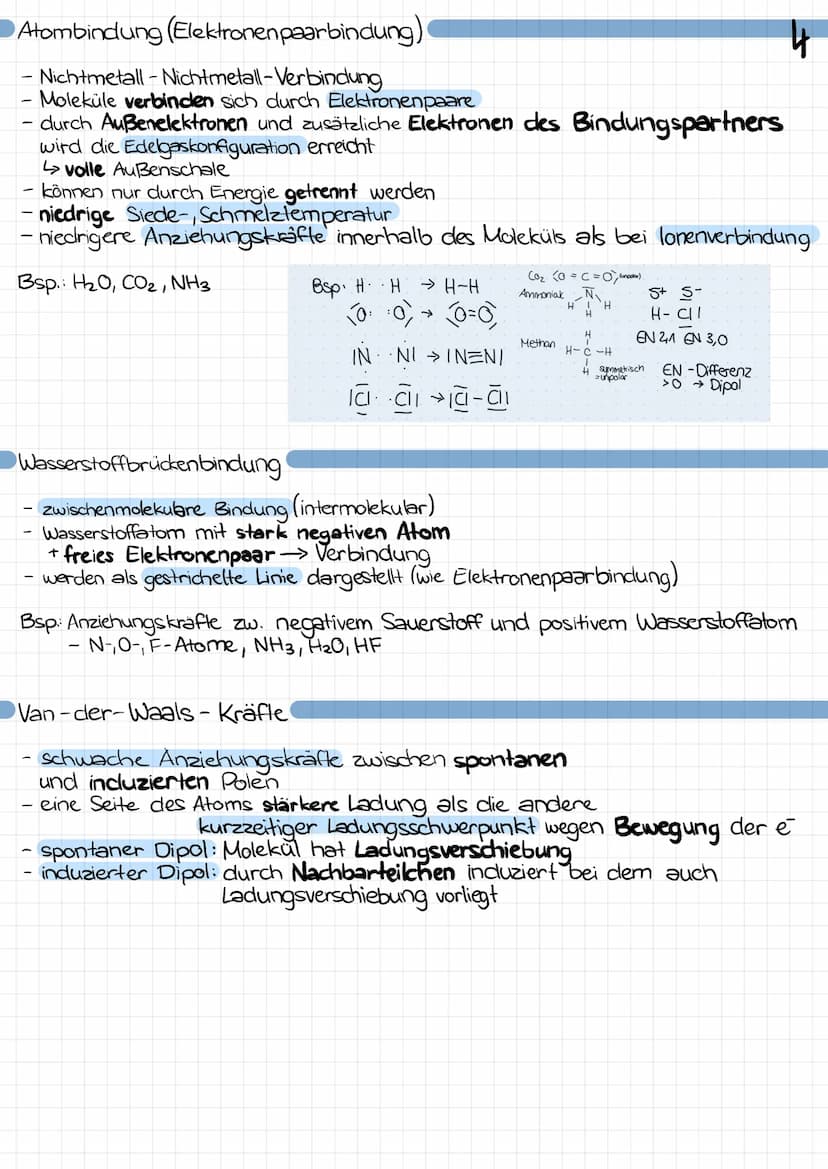 Atombindung (Elektronenpaarbindung)
4
- Nichtmetall - Nichtmetall - Verbindung
- Moleküle verbinden sich durch Elektronenpaare
- durch Außenelektronen und zusätzliche Elektronen des Bindungspartners
wird die Edelgaskonfiguration erreicht
↳ volle Außenschale
- können nur durch Energie getrennt werden
- niedrige Siede-, Schmelztemperatur
- niedrigere Anziehungskräfte innerhalb des Moleküls als bei Ionenverbindung
Bsp.: H₂O, CO₂, NH₃
Bsp. H· ·H → H-H
⟨O: :O⟩ → ⟨O=O⟩
IN⋮ ⋮NI → IN≡NI
IC̲̅l· ·C̲̅lI → IC̲̅l-C̲̅lI
CO₂ ⟨O=C=O⟩ (unpolar)
Ammoniak N̅
H H
H
Methan
H
H-C-H
H
symmetrisch
=unpolar
δ+ δ-
H-C̲̅lI
EN 2,1 EN 3,0
EN-Differenz
>0 → Dipol
Wasserstoffbrückenbindung
- zwischenmolekulare Bindung (intermolekular)
- Wasserstoffatom mit stark negativen Atom
+ freies Elektronenpaar → Verbindung
- werden als gestrichelte Linie dargestellt (wie Elektronenpaarbindung)
Bsp.: Anziehungskräfte zw. negativem Sauerstoff und positivem Wasserstoffatom
- N-, O-, F-Atome, NH₃, H₂O, HF
Van-der-Waals-Kräfte
- schwache Anziehungskräfte zwischen spontanen
und induzierten Polen
- eine Seite des Atoms stärkere Ladung als die andere
kurzzeitiger Ladungsschwerpunkt wegen Bewegung der e⁻
- spontaner Dipol: Molekül hat Ladungsverschiebung
- induzierter Dipol: durch Nachbarteilchen induziert bei dem auch
Ladungsverschiebung vorliegt